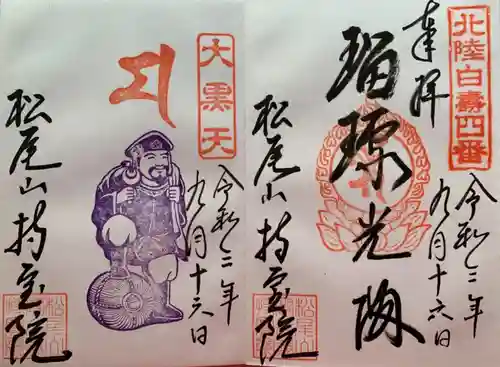 北陸白寿四番
奉拝
瑠璃光殿
令和三年
九月十六日
松尾山持宝院
大黒天
令和三年
九月十六日
松尾山持宝院